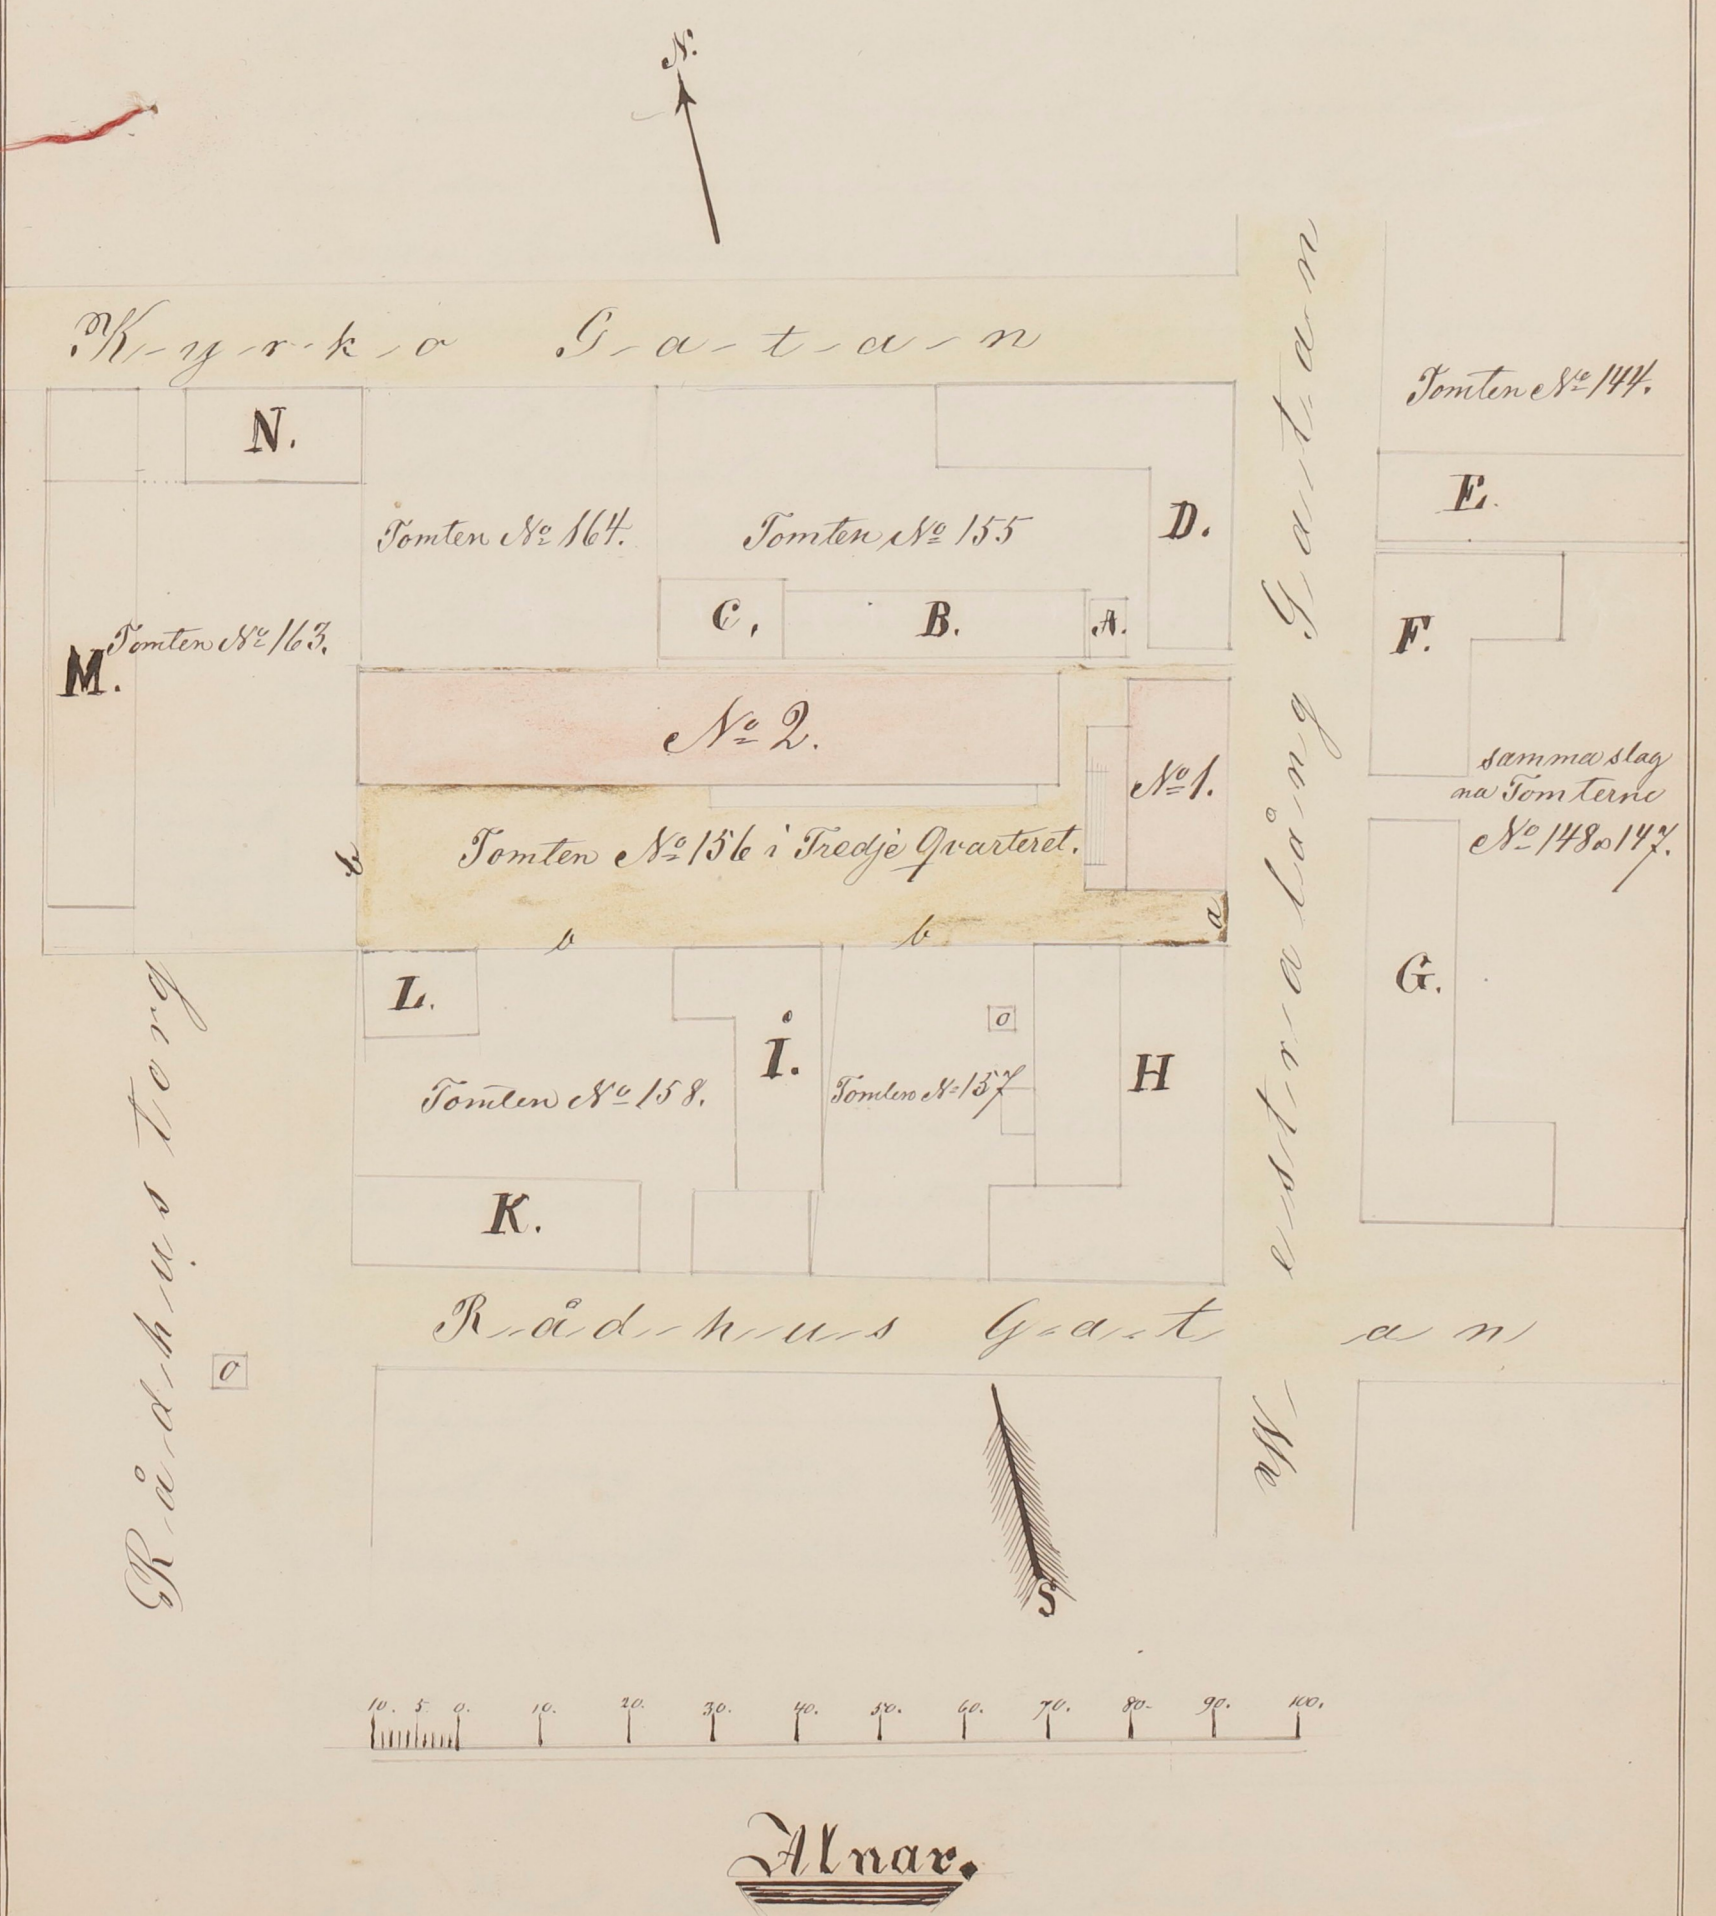 N.
Kyrko Gatan
Tomten No 144.
N.
E.
Tomten No 164.
Tomten No 155
D.
C,
B.
A.
F.
Tomten No 163.
M.
No 2.
No 1.
samma slag
na Tomterne
No 148 o 147.
Tomten No 156 i Tredje Qvarteret.
b
b
b
a
Westra lång Gatan
L.
G.
I.
o
H
Tomten No 158.
Tomten No 157
K.
Rådhus torg
Rådhus Gatan
o
S
10. 5 0. 10. 20. 30. 40. 50. 60. 70. 80. 90. 100.
Alnar.